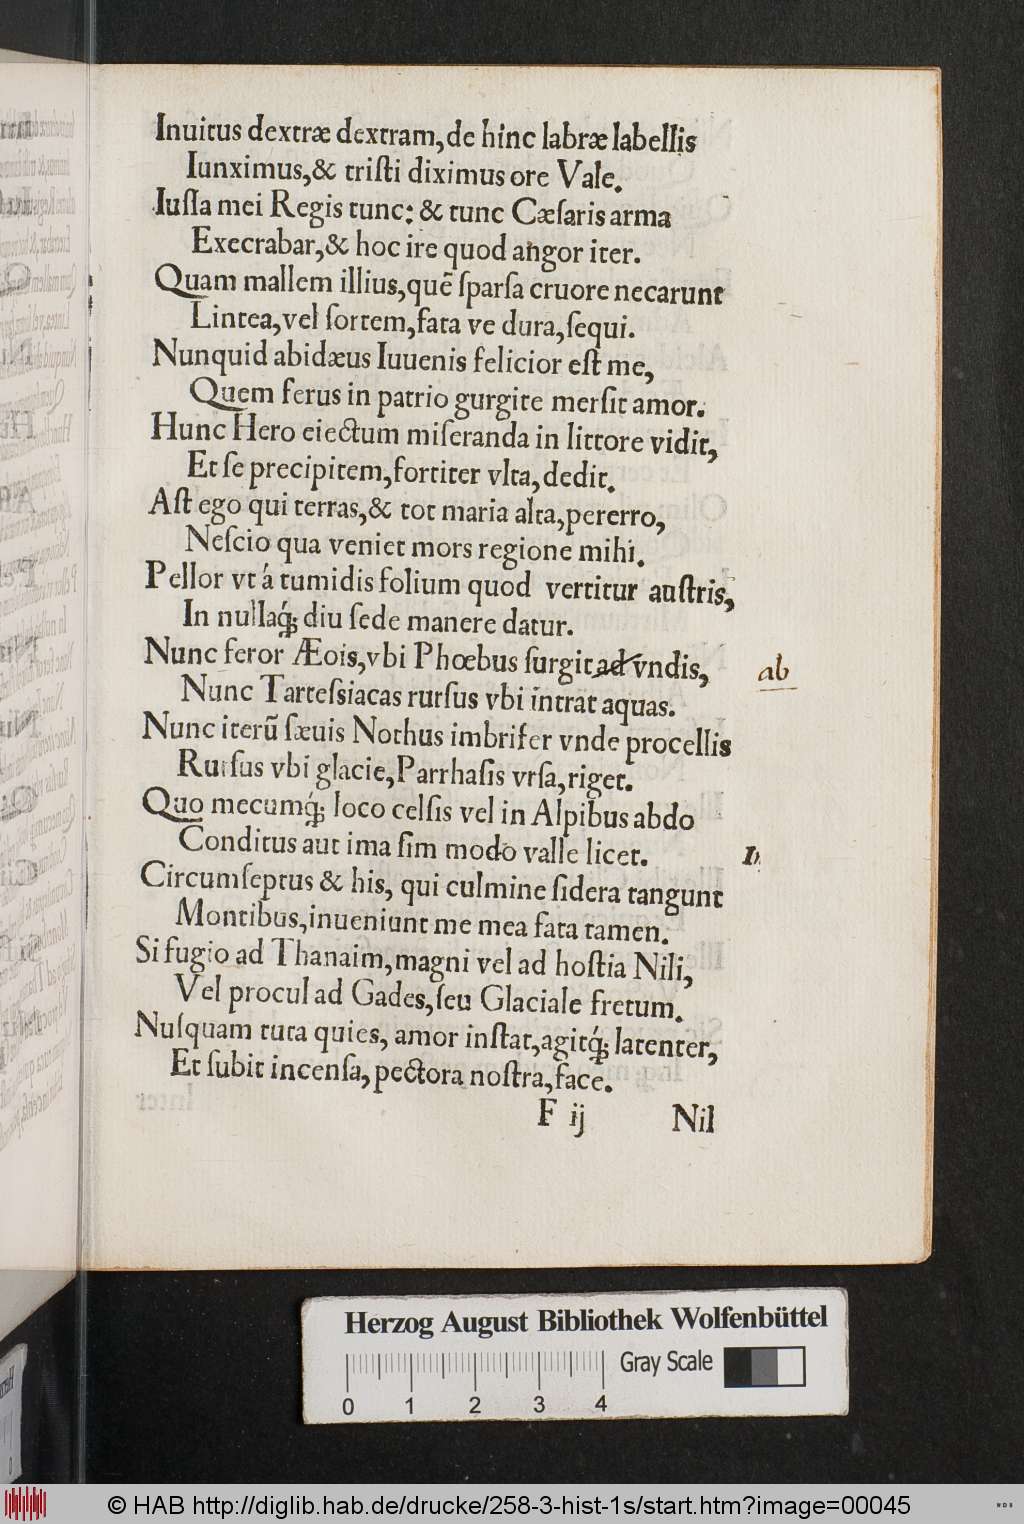 Inuitus dextræ dextram, de hinc labræ labellis
Iunximus, & tristi diximus ore Vale.
Iussa mei Regis tunc: & tunc Cæsaris arma
Execrabar, & hoc ire quod angor iter.
Quam mallem illius, quẽ sparsa cruore necarunt
Lintea, vel sortem, fata ve dura, sequi.
Nunquid abidæus Iuuenis felicior est me,
Quem ferus in patrio gurgite mersit amor.
Hunc Hero eiectum miseranda in littore vidit,
Et se precipitem, fortiter vlta, dedit.
Ast ego qui terras, & tot maria alta, pererro,
Nescio qua veniet mors regione mihi.
Pellor vt á tumidis folium quod vertitur austris,
In nullaq́; diu sede manere datur.
Nunc feror Æois, vbi Phœbus surgit ad vndis,
ab
Nunc Tartessiacas rursus vbi intrat aquas.
Nunc iterũ sæuis Nothus imbrifer vnde procellis
Rursus vbi glacie, Parrhasis vrsa, riget.
Quo mecumq́; loco celsis vel in Alpibus abdo
Conditus aut ima sim modo valle licet.
Circumseptus & his, qui culmine sidera tangunt
Montibus, inueniunt me mea fata tamen.
Si fugio ad Thanaim, magni vel ad hostia Nili,
Vel procul ad Gades, seu Glaciale fretum.
Nusquam tuta quies, amor instat, agitq́; latenter,
Et subit incensa, pectora nostra, face.
F ij Nil
Herzog August Bibliothek Wolfenbüttel
Gray Scale
0 1 2 3 4
© HAB http://diglib.hab.de/drucke/258-3-hist-1s/start.htm?image=00045